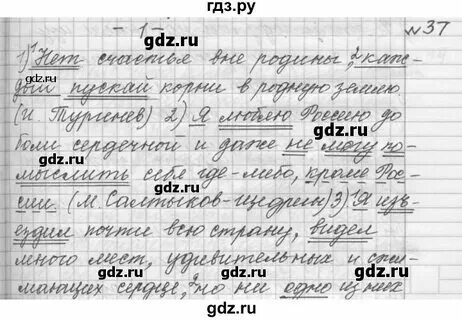 гдз.ру
- 1 -
№37
1) ¹Нет счастья вне родины, ²каж-
дый пускай корни в родную землю
(И. Тургенев) 2) Я люблю Россию до
боли сердечной и даже не могу по-
мыслить себя где-либо, кроме Рос-
сии. (М. Салтыков-Щедрин) 3) ¹Я изъ-
ездил почти всю страну, видел
много мест, удивительных и сжи-
мающих сердце, ²но ни одно из них
gdz.ru
gdz.ru
gdz.ru
gdz.ru
gdz.ru
gdz.ru
gdz.ru
gdz.ru
gdz.ru